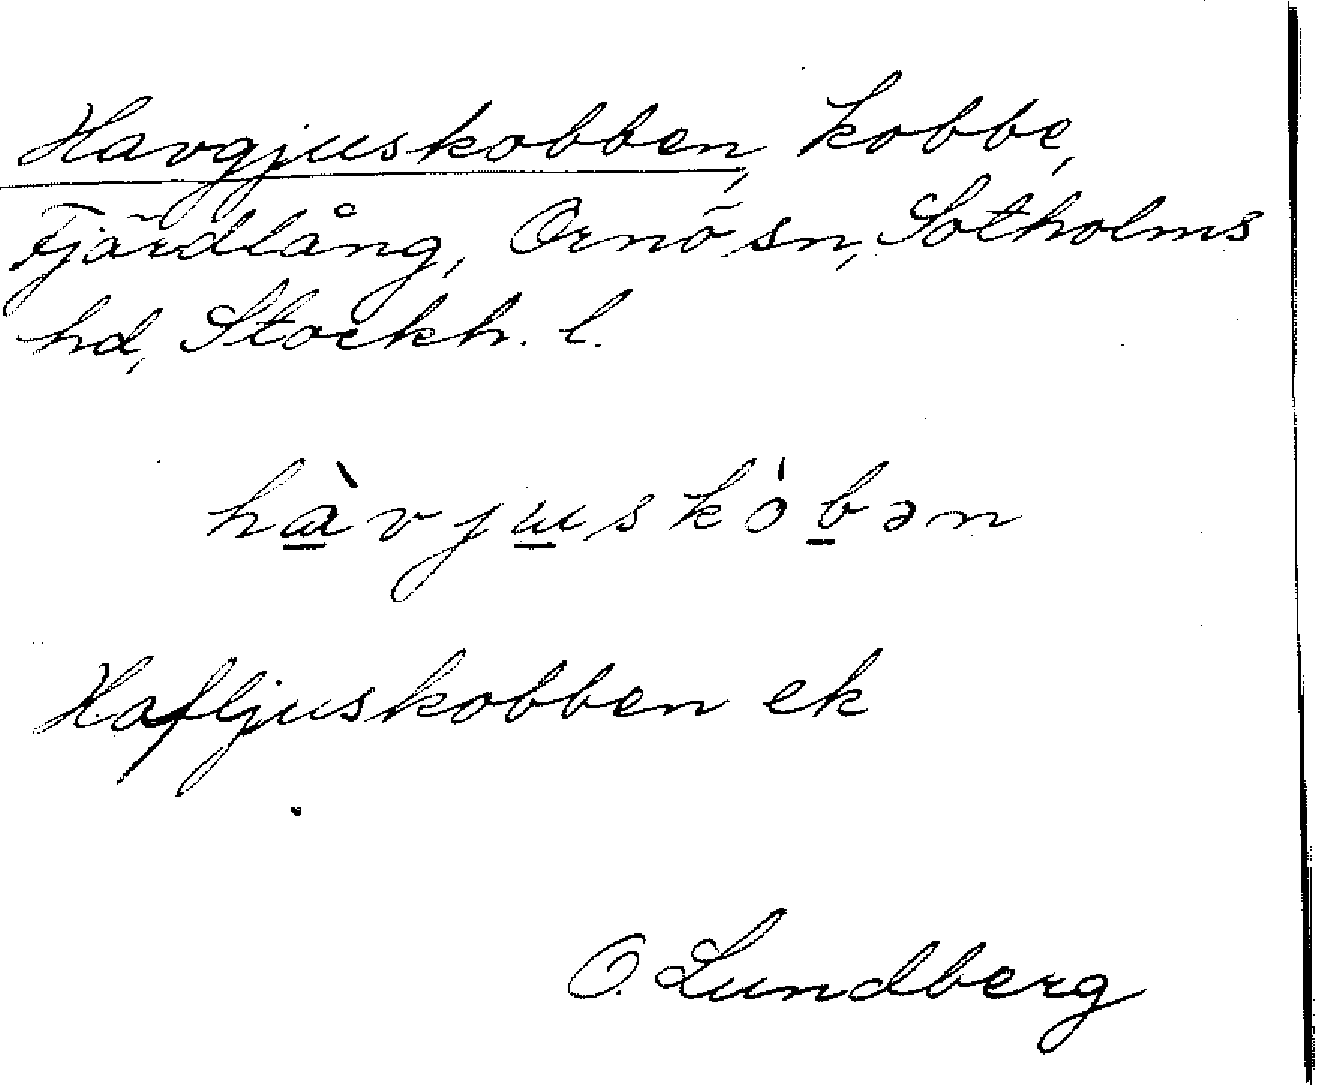 Havgjuskobben, kobbe,
Fjärdlång, Ornö sn, Sotholms
hd, Stockh. l.
hàvjuskóbən
Hafljuskobben ek
O. Lundberg